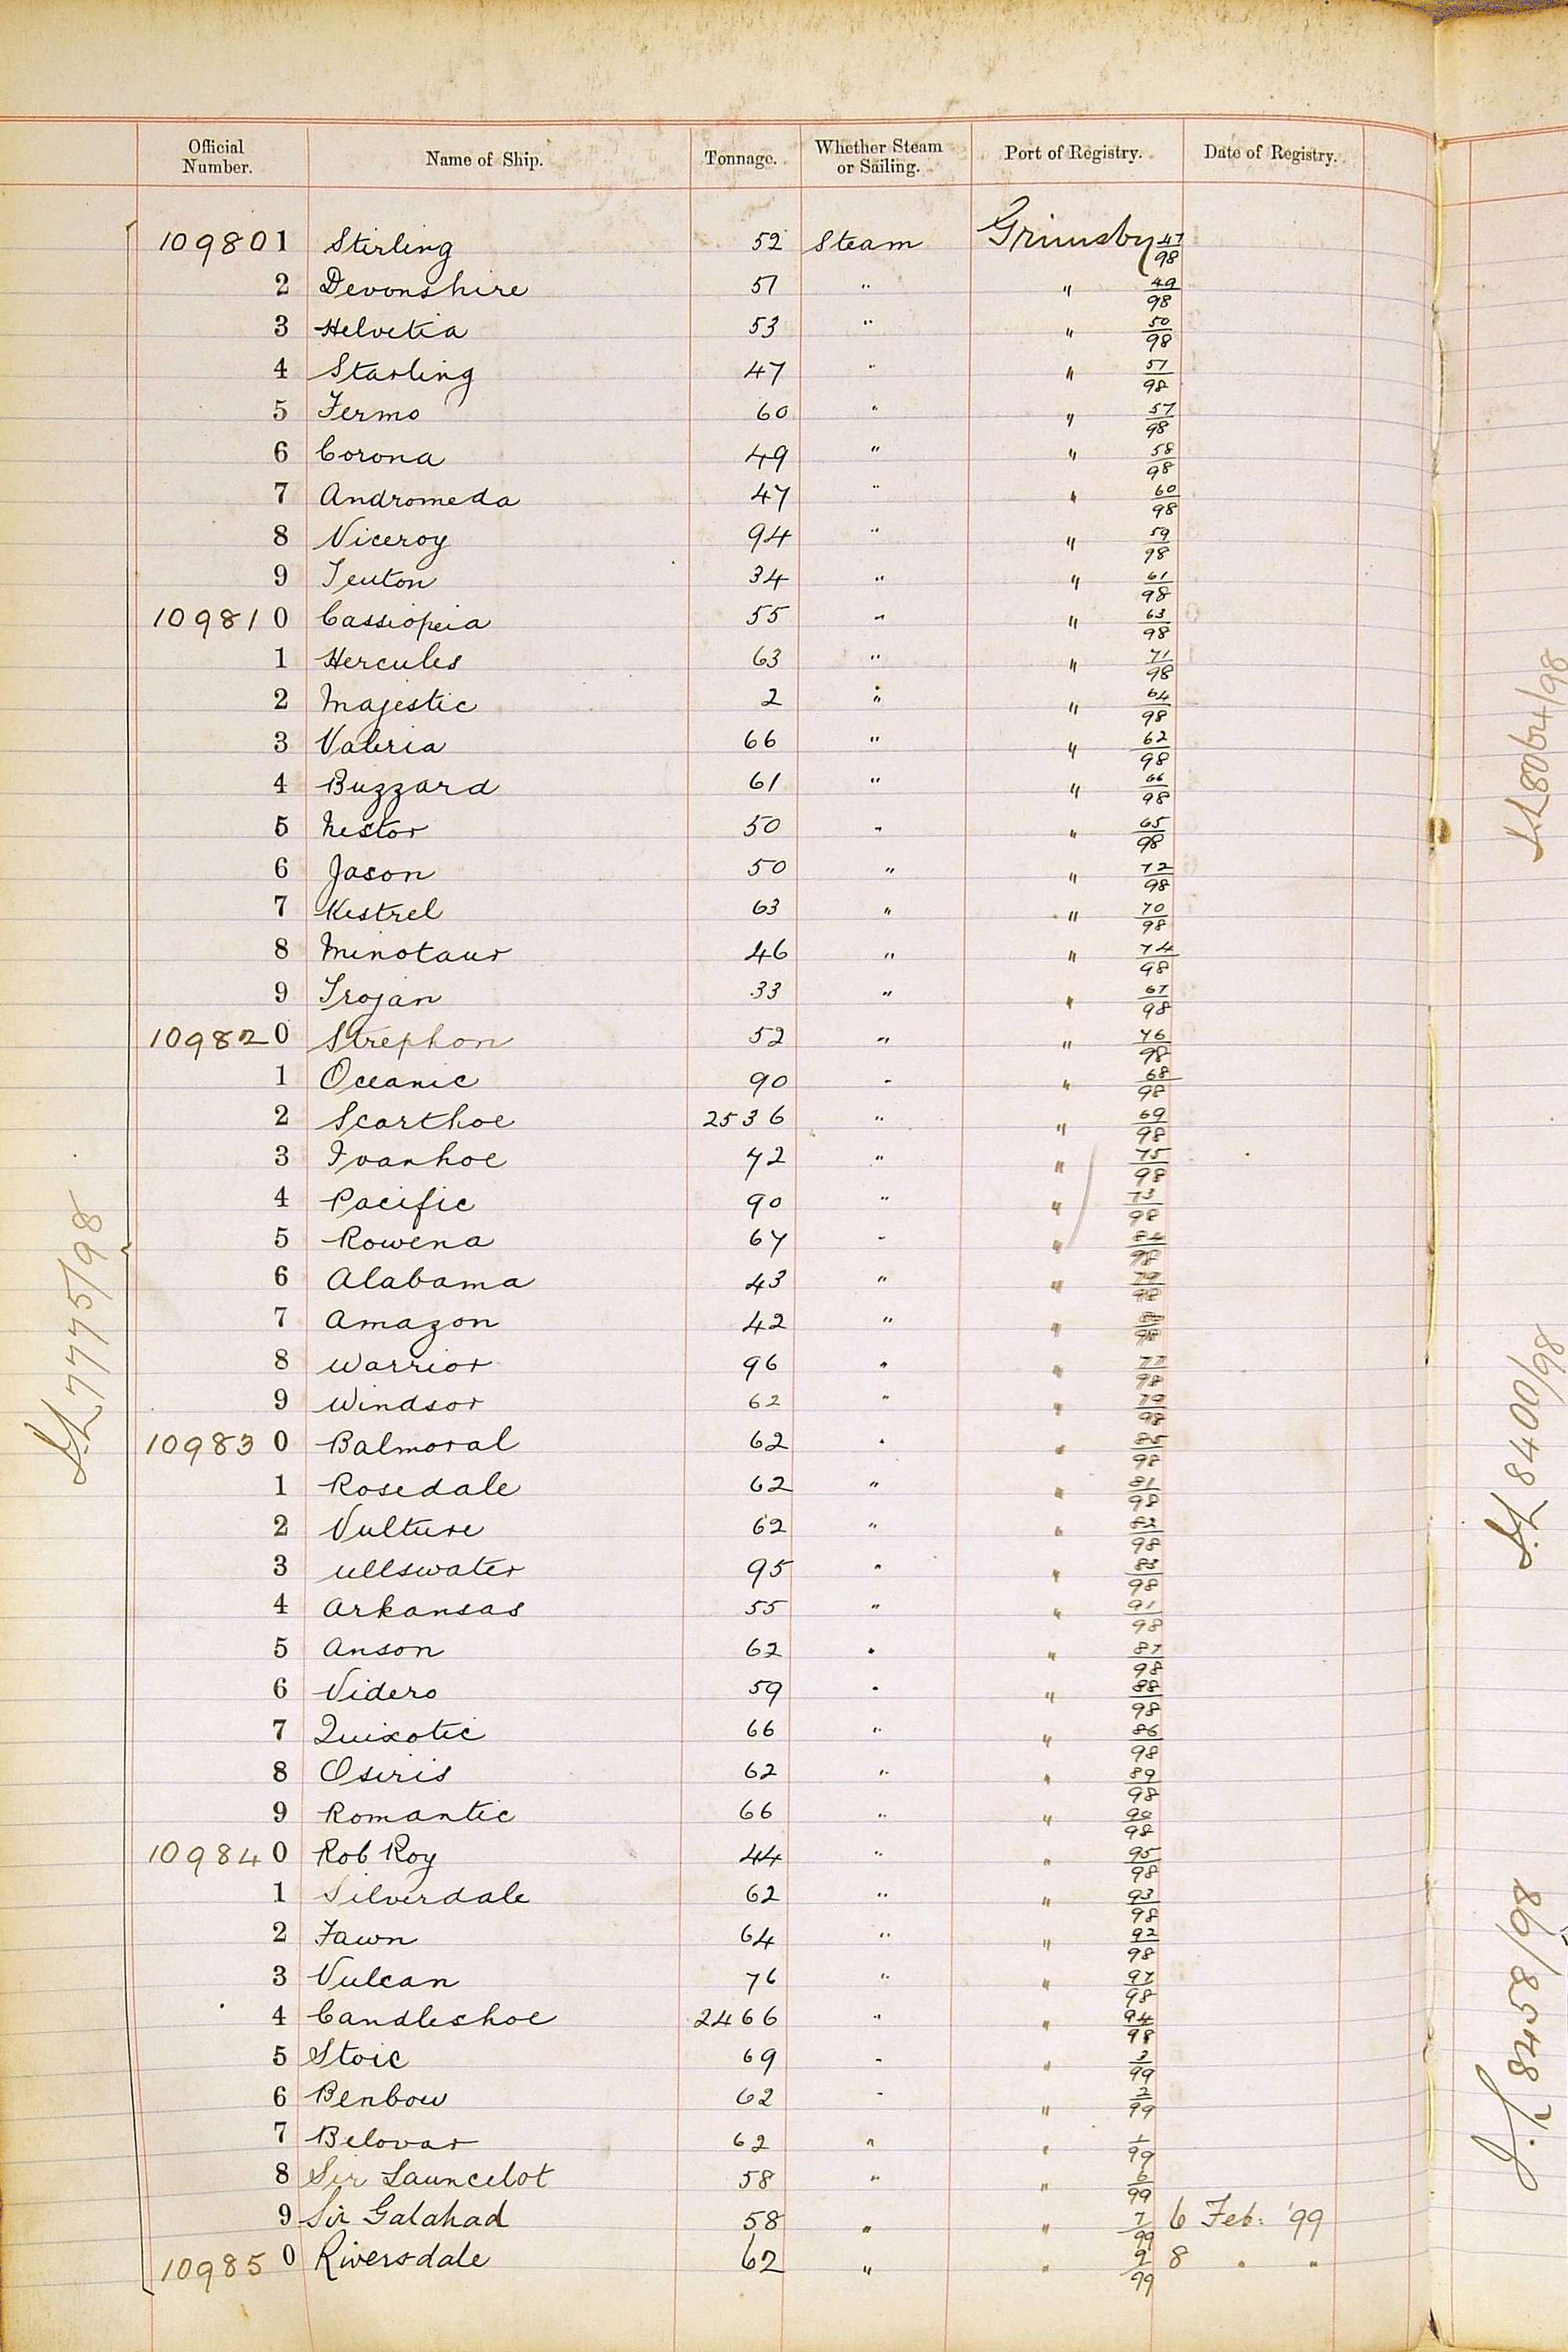 Official Number. Name of Ship. Tonnage. Whether Steam or Sailing. Port of Registry. Date of Registry.
109801 Stirling 52 Steam Grimsby 47/98
2 Devonshire 51 " " 49/98
3 Helvetia 53 " " 50/98
4 Starling 47 " " 51/98
5 Fermo 60 " " 57/98
6 Corona 49 " " 58/98
7 Andromeda 47 " " 60/98
8 Viceroy 94 " " 59/98
9 Teuton 34 " " 61/98
109810 Cassiopeia 55 " " 63/98
1 Hercules 63 " " 71/98
2 Majestic 2 " " 64/98
3 Valeria 66 " " 62/98
4 Buzzard 61 " " 66/98
5 Nestor 50 " " 65/98
6 Jason 50 " " 72/98
7 Kestrel 63 " " 70/98
8 Minotaur 46 " " 74/98
9 Trojan 33 " " 67/98
109820 Strephon 52 " " 76/98
1 Oceanic 90 " " 68/98
2 Scarthoe 2536 " " 69/98
3 Ivanhoe 72 " " 75/98
4 Pacific 90 " " 73/98
5 Rowena 67 " " 84/98
6 Alabama 43 " " 98
7 Amazon 42 " " 80/98
8 Warrior 96 " " 77/98
9 Windsor 62 " " 79/98
109830 Balmoral 62 " " 85/98
1 Rosedale 62 " " 81/98
2 Vulture 62 " " 82/98
3 Ullswater 95 " " 83/98
4 Arkansas 55 " " 91/98
5 Anson 62 " " 87/98
6 Videro 59 " " 88/98
7 Quixotic 66 " " 86/98
8 Osiris 62 " " 89/98
9 Romantic 66 " " 90/98
109840 Rob Roy 44 " " 95/98
1 Silverdale 62 " " 93/98
2 Fawn 64 " " 92/98
3 Vulcan 76 " " 97/98
4 Candleshoe 2466 " " 94/98
5 Stoic 69 " " 3/99
6 Benbow 62 " " 2/99
7 Belovar 62 " " 1/99
8 Sir Launcelot 58 " " 6/99
9 Sir Galahad 58 " " 7/99 6 Feb: '99
109850 Riversdale 62 " " 9/99 8 " "
S.L 7775/98
S.L 8064/98
S.L 8400/98
S.L 8458/98